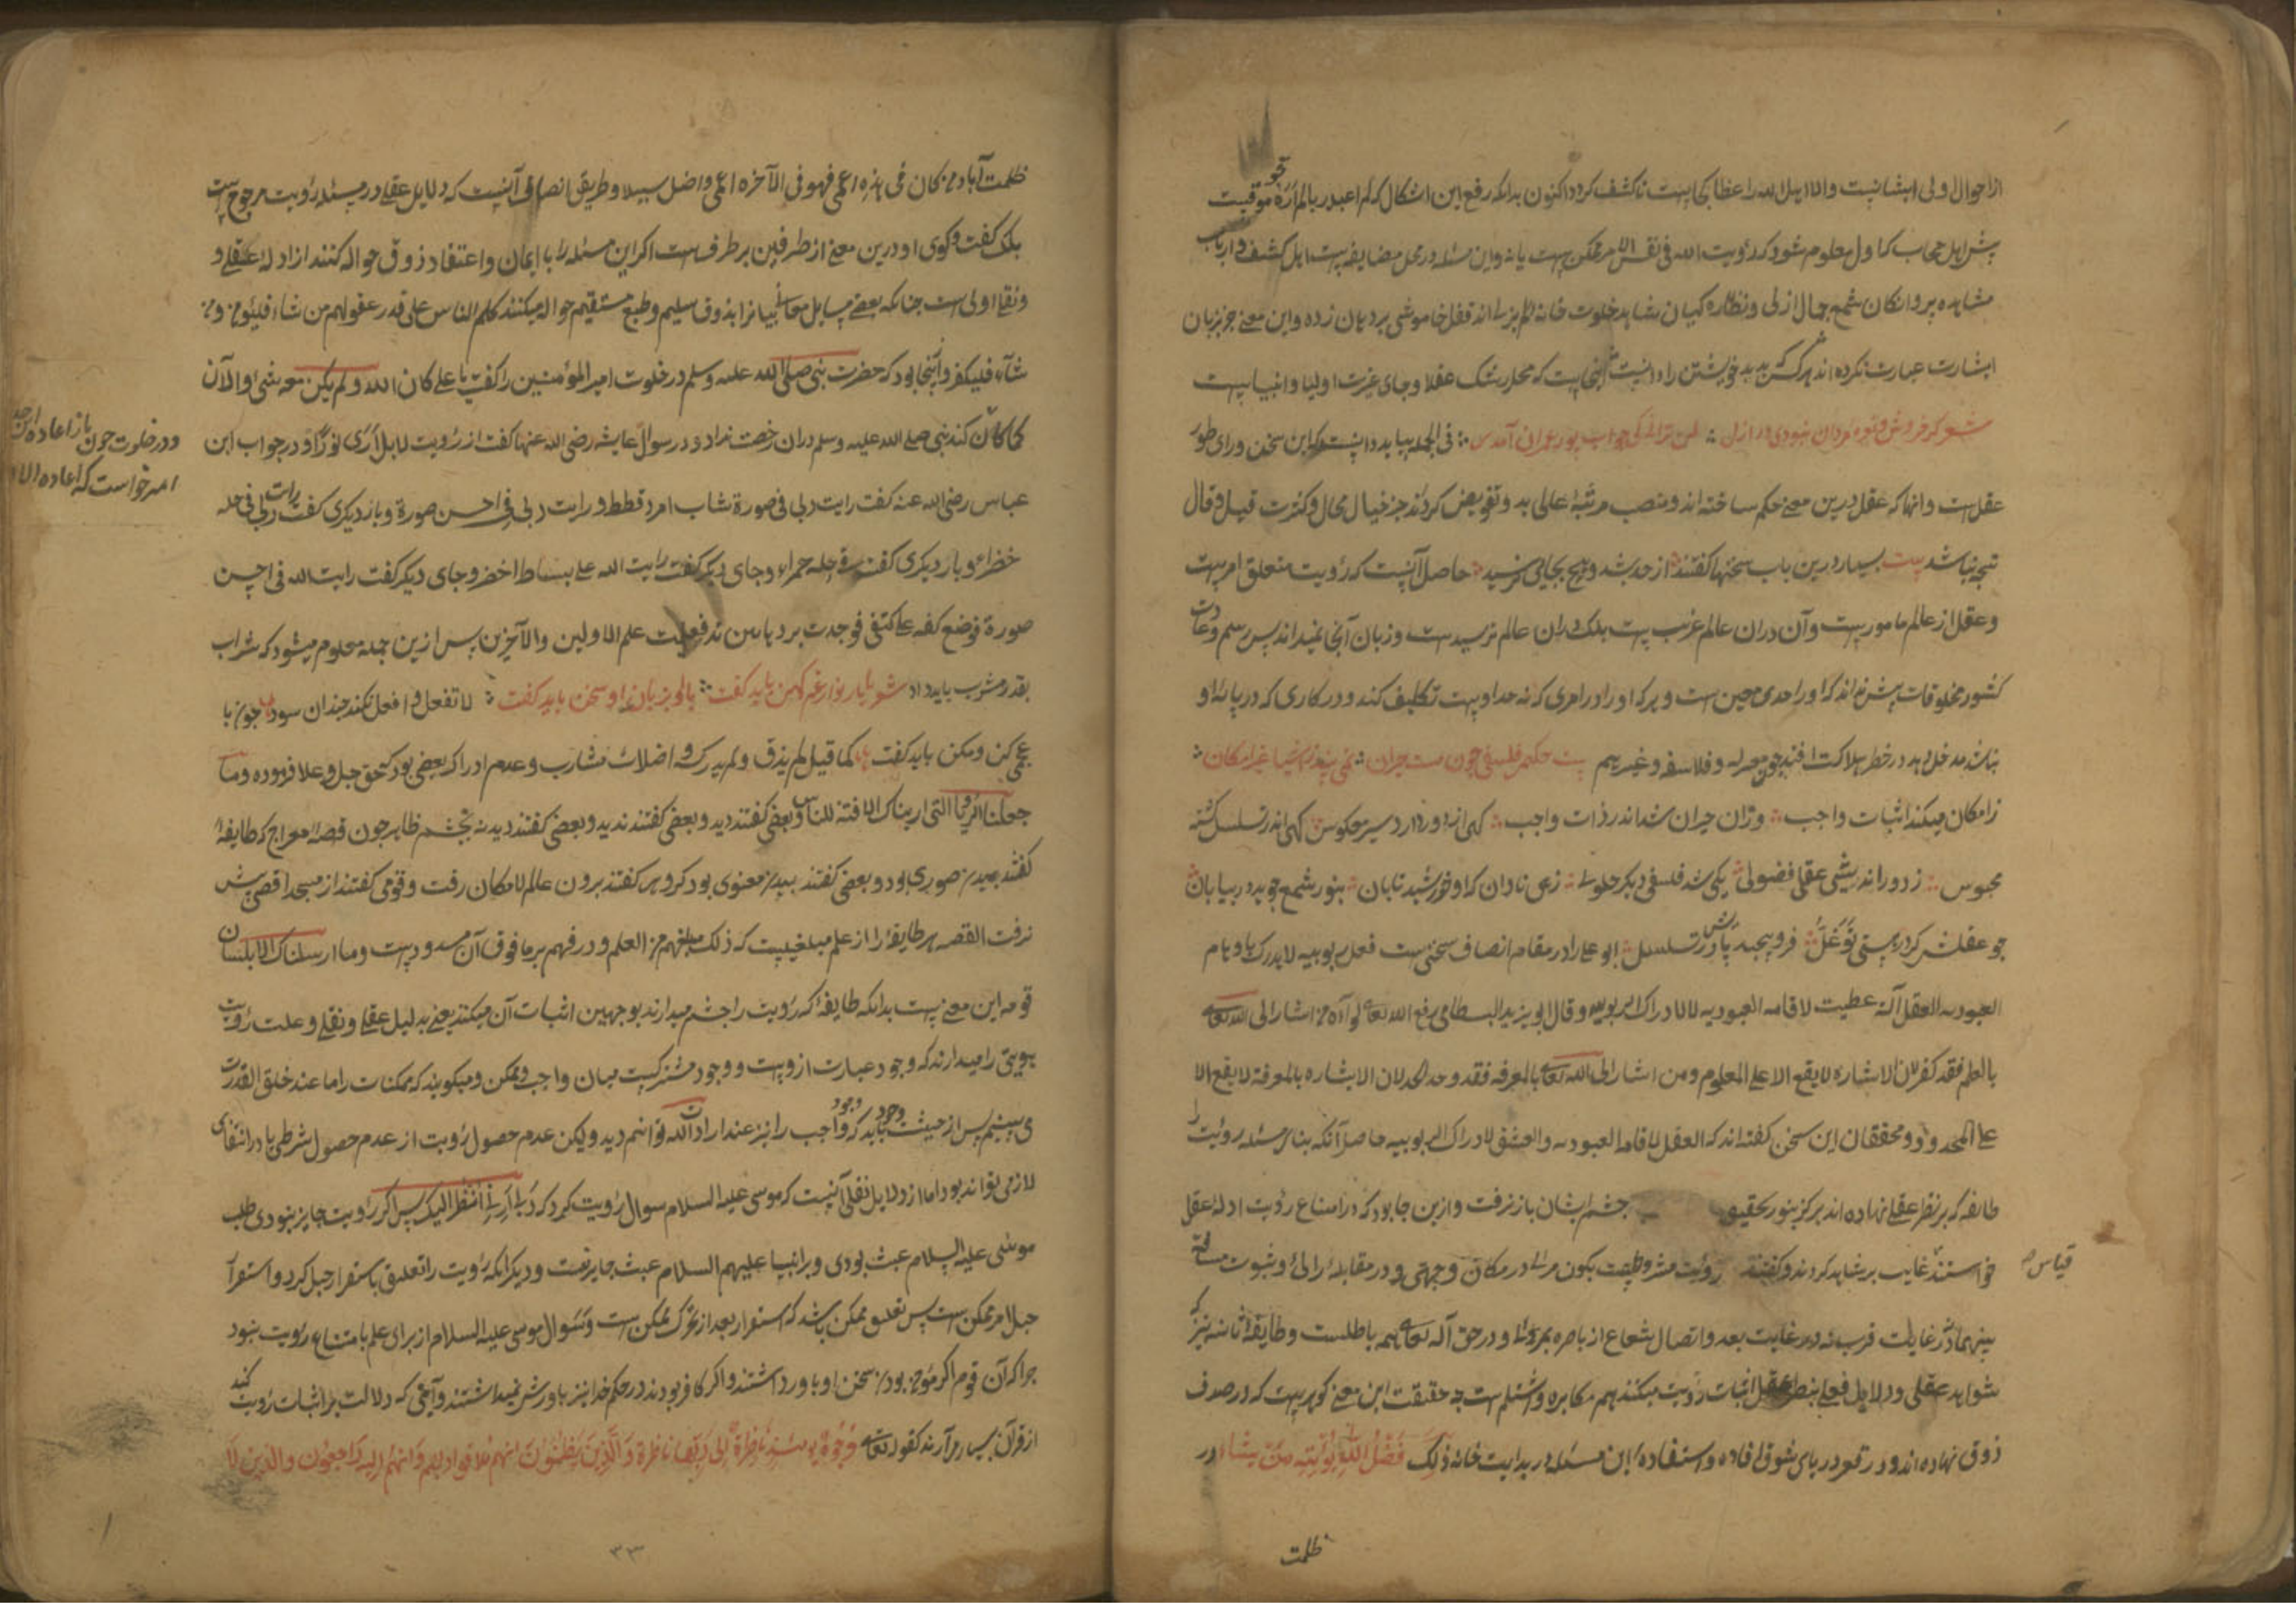 از احوال اولی ایشانیست والا اهل الله را عظایمست ناکشف کردد اکنون بدانکه رفع این اشکال که لم اعبد ربا لم اره موقوفیست
پیش اهل حجاب که اول معلوم شود که رؤیت الله فی نفس الامر ممکن هست یا نه و این مسئله در محل مضایقه است اهل کشف و ارباب
مشاهده پروانکان شمع جمال ازلی و نظاره کیان شاهد خلوت خانه لم یزل اند قفل خاموشی بر دهان زده و این معنی جز بزبان
اشارت عبارت نکرده اند هر کس بدید خویشتن را دانست این جاییست که محل رشک عقلا و جای غیرت اولیا و انبیا هست
فی الجمله بباید دانست که این سخن ورای طور
عقل است و انها که عقل درین معنی حکم ساخته اند و منصب مرتبه اعلی بدو تفویض کردند جز خیال محال و کثرت قیل و قال
نتیجه نباشد بیت بسیار درین باب سخنها کفتند از حد شد و هیچ بجایی نرسید حاصل آنست که رؤیت متعلق امریست
و عقل از عالم مأموریست و آن دران عالم غریب است بلکه دران عالم نرسیده است و زبان آنجا نمیداند پس رسم و عادت
کشور مخلوقات پیش نهاند که او را حدی معین است و هر که او را در امری که نه حد اوست تکلیف کند و در کاری که در پایه او
نباشد مدخل دهد در خطر هلاکت افتد چون معتزله و فلاسفه و غیرهم بیت حکیم فلسفی چون هست حیران نمی بیند ز اشیا غیر امکان
ز امکان میکند اثبات واجب وزان حیران شد اندر ذات واجب کهی از دور دارد سیر معکوس کهی اندر تسلسل کشته
محبوس ز دوراندیشی عقل فضولی یکی شد فلسفی دیکر حلولی زهی نادان که او خورشید تابان بنور شمع جوید در بیابان
چو عقلش کرد در هستی توغل فرو پیچید پایش در تسلسل ابو علی را در مقام انصاف سخنی است
العبودیه العقل آلة عطیت لاقامه العبودیه لا لادراک الربوبیه و قال ابو یزید البسطامی رفع الله تعالی من اشار الی الله تعالی
بالعلم فقد کفر لان الاشاره لا یقع الا علی المعلوم ومن اشار الی الله تعالی بالمعرفه فقد الحد لان الاشاره بالمعرفة لا یقع الا
علی المحدود و محققان این سخن کفته اند که العقل لاقامة العبودیه والعشق لادراک الربوبیه حاصل آنکه بنا بر مسئله رؤیت را
طایفه که بر نظر عقلی نهاده اند هرکز بنور تحقیق چشم ایشان باز نرفت و ازین جا بود که در امتناع رؤیت ادله عقل
خواستند غایب بر شاهد کردند و کفتند رؤیت مشروطست بکون مرئی در مکان و جهتی و در مقابله رائی و ثبوت مسافة
قیاس
بینهما در غایت قرب نه در غایت بعد و اتصال شعاع از باصره بمرئی و در حق اله تعالی همه باطلست و طایفه ثانیه نیز که
شواهد عقلی و دلایل اثبات رؤیت میکنند هم مکابره است حقیقت این معنی کوهریست که در صدف
ذوق نهاده اند و در قعر دریای شوق افتاده و استفاده این مسئله در بدایت خانه ذلک فضل الله یؤتیه من یشاء در
ظلمت
ظلمت آباد من کان فی هذه اعمی فهو فی الآخره اعمی واضل سبیلا و طریق انصاف آنست که دلایل عقلی در مسئله رؤیت مرجوح است
بلکه کفت و کوی او درین معنی از طرفین بر طرف است اکر این مسئله را با ایمان و اعتقاد ذوق حواله کنند از ادله عقلی و
و نقلی اولی است چنانکه بعضی مسایل معانی بیانرا بذوق سلیم و طبع مستقیم حواله میکنند کلم الناس علی قدر عقولهم من شاء فلیؤمن ومن
شاء فلیکفر و اینجا بود که حضرت نبی صلی الله علیه وسلم در خلوت امیر المؤمنین را کفت یا علی کان الله ولم یکن معه شئ والآن
کما کان کند نبی صلی الله علیه وسلم دران رخصت نداد و در سوال عایشه رضی الله عنها کفت از رؤیت لا بل اری نورا و در جواب ابن
و در خلوت چون باز اعاده این
امر خواست که اعاده
عباس رضی الله عنه کفت رایت ربی فی صورة شاب امرد قطط و رایت ربی فی احسن صورة و باز دیکری کفت رایت ربی فی حله
خضراء و بار دیکری کفت فی حله حمراء و جای دیکر کفت رایت الله علی بساط اخضر و جای دیکر کفت رایت الله فی احسن
صورة فوضع کفه علی کتفی فوجدت برد فعلمت علم الاولین والآخرین پس ازین جمله معلوم میشود که شراب
بقدر مشرب باید داد شعر با یار نو از غم کهن باید کفت با او بزبان او سخن باید کفت لا تفعل و افعل نکند چندان سود چون با
عجمی کن و مکن باید کفت کما قیل لم یذق ولم یدرک و اختلاف مشارب و عدم ادراک بعضی بود که حق جل و علا فرموده وما
جعلنا الرؤیا التی اریناک الا فتنة للناس و بعضی کفتند دید و بعضی کفتند ندید و بعضی کفتند دید نه بچشم ظاهر چون قصه معراج که طایفه
کفتند صوری بود و بعضی کفتند معنوی بود کروهی کفتند برون عالم لامکان رفت و قومی کفتند از مسجد اقصی پیش
نرفت القصه هر طایفه را از علم مبلغیست که ذلک مبلغهم من العلم و در فهم بر ما فوق آن مسدودست وما ارسلناک الا بلسان
قومه این معنی است بدانکه طایفه که رؤیت را بچشم میدارند بوجهین اثبات آن میکنند یعنی بدلیل عقلی و نقلی و علت رؤیت
هویتی را میدارند که وجود عبارت ازوست و وجود مشترکست میان واجب و ممکن و میکویند که ممکنات را ما عند خلق القدرت
می بینیم پس از حیث وجود باید که وجود واجب را نیز عند اراد الله توانیم دید ولیکن عدم حصول رؤیت از عدم حصول شرطی یا در انتفای
لازمی تواند بود اما از دلایل نقلی آنست که موسی علیه السلام سوال رؤیت کرد که رب ارنی انظر الیک پس اکر رؤیت جایز نبودی طلب
موسی علیه السلام عبث بودی و بر انبیا علیهم السلام عبث جایز نیست و دیکر آنکه رؤیت را تعلیق باستقرار جبل کرد و استقرار
جبل امر ممکن است پس تعلیق ممکن باشد که استقرار بعد از تحرک ممکن است و سؤال موسی علیه السلام از برای علم بامتناع رؤیت نبود
چرا که آن قوم اکر مؤمن بودند سخن او باور داشتند و اکر کافر بودند در حکم خدا نیز باورش نمیداشتند و آیتی که دلالت بر اثبات رؤیت کند
از قرآن بسیار می آرند کقوله تعالی وجوه یومئذ ناضرة الی ربها ناظرة والذین یظنون انهم ملاقوا ربهم وانهم الیه راجعون والذین لا
۳۳